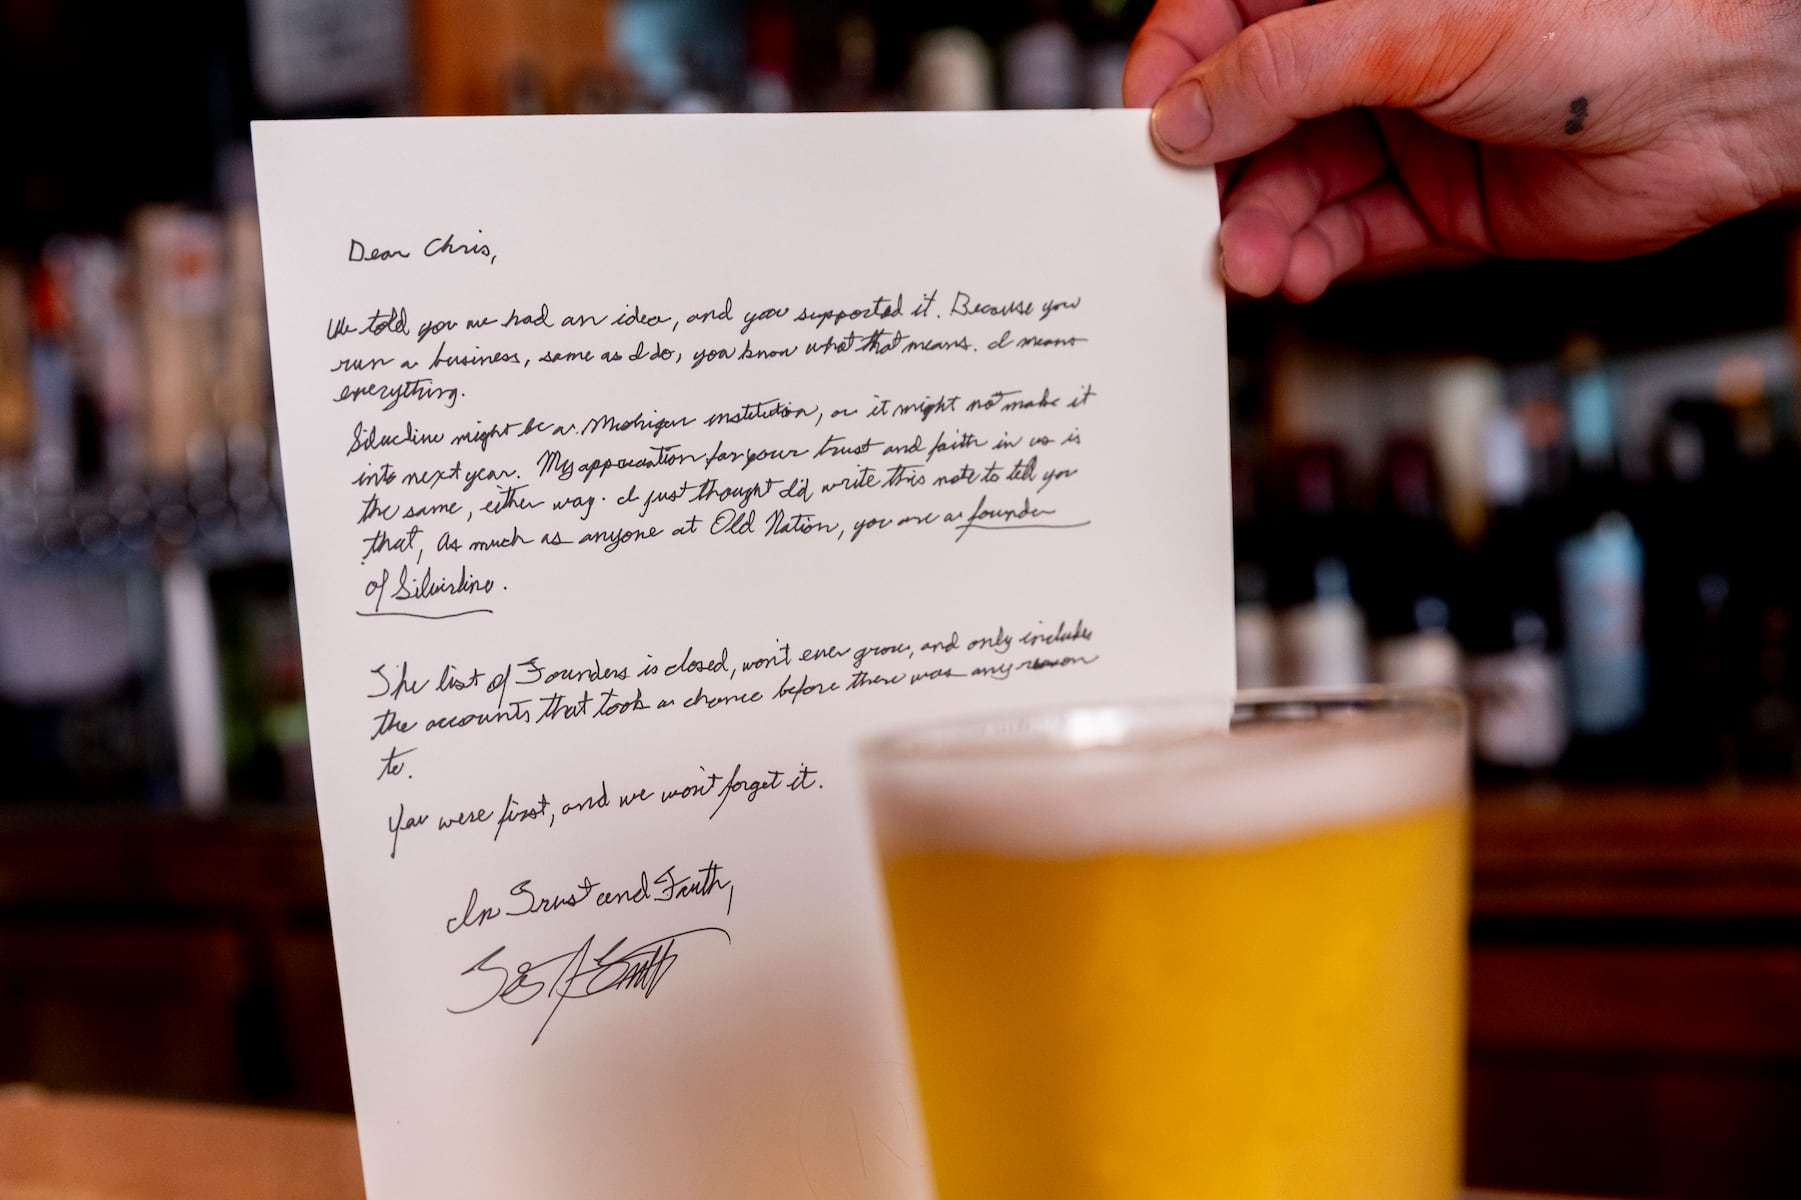 Dear Chris,
We told you we had an idea, and you supported it. Because you
run a business, same as I do, you know what that means. It means
everything.
Silverline might be a Michigan institution, or it might not make it
into next year. My appreciation for your trust and faith in us is
the same, either way. I just thought I'd write this note to tell you
that, as much as anyone at Old Nation, you are a founder
of Silverline.
The list of Founders is closed, won't ever grow, and only includes
the accounts that took a chance before there was any reason
to.
You were first, and we won't forget it.
In Trust and Faith,